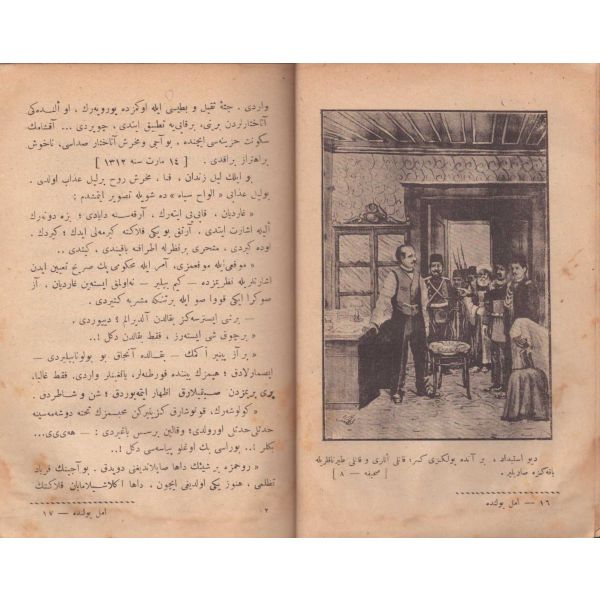 واردی . جثۀ ثقیل و بطیسی ایله اوکمزده یورویه‌رك ، او النده‌کی
آناختارلردن برنی ، برقاپی‌یه تطبیق ایتدی ، چویردی ... آقشامك
سکوت حزینه‌سی ایچنده ، بو آجی مخرش آناختار صداسی ، ناخوش
براهتزاز براقدی . [ ١٤ مارت سنه ١٣١٢ ]
بو ایلك لیل زندان ، مخرش روح برلیل عذاب اولدی .
بولیل عذابی « الواح سیاه » ده شویله تصویر ایتمشدم :
« غاردیان ، قاپی‌یی ایته‌رك ، آرقه‌سنه دایادی ؛ بزه دونه‌رك
الیله اشارت ایتدی . آرتق بو یکی فلاکته کیرمه‌لی ایدك ؛ کیردك .
اوده کیردی ، متحری برنظرله اطرافه باقیندی . کیتدی ..
« موقعی ایله موقعمزی ، آمر ایله محکومی پك صریح تعیین ایدن
اشارتلریله نظریمزده — کیم بیلیر — نه‌اولمق ایسته‌ین غاردیان . آز
صوکرا ایکی قووا صو ایله برتنکه مشربه کتیردی .
— برشی ایسترسه‌کز بقالدن آلدیرالم ؛ دییوردی .
« برچوق شی ایسته‌رز ، فقط بقالدن دکل !..
« بر آز پینیر اکمك — بقالده آنجاق بو بولونابیلیردی —
ایصمارلادق ؛ هپمزك یننده قورطنه‌لر ، یالغینلر واردی . فقط غالبا ،
بری بریمزدن صیقیلارق اظهار ایتمه‌یوردق ؛ شن و شاطردق .
« کولوشه‌رك ، قونوشارق کزینیرکن محبسمزك تخته دوشه‌مه‌سینه
حدتلی حدتلی اورولدی ؛ وقالین برسس باغیردی : — هه‌ی‌ی‌ی...
بکلر !.. بوراسی بك اوغلو پیاسه‌سی دکل !..
« روحمزه بر شیئك داها صاپلاندیغنی دویدق . بو آجینك فریاد
تظلمی ، هنوز یکی اولدیغی ایچون ، داها اکلاشیلامایان فلاکتك
٢
امل یولنده — ١٧
دیو استبداد ، بر آنده یولکزی کسر ؛ قانلی اللری و قانلی طیرناقلریله
یاقه‌کزه صاریلیر . [ صحیفه — ٨ ]
١٦ — امل یولنده